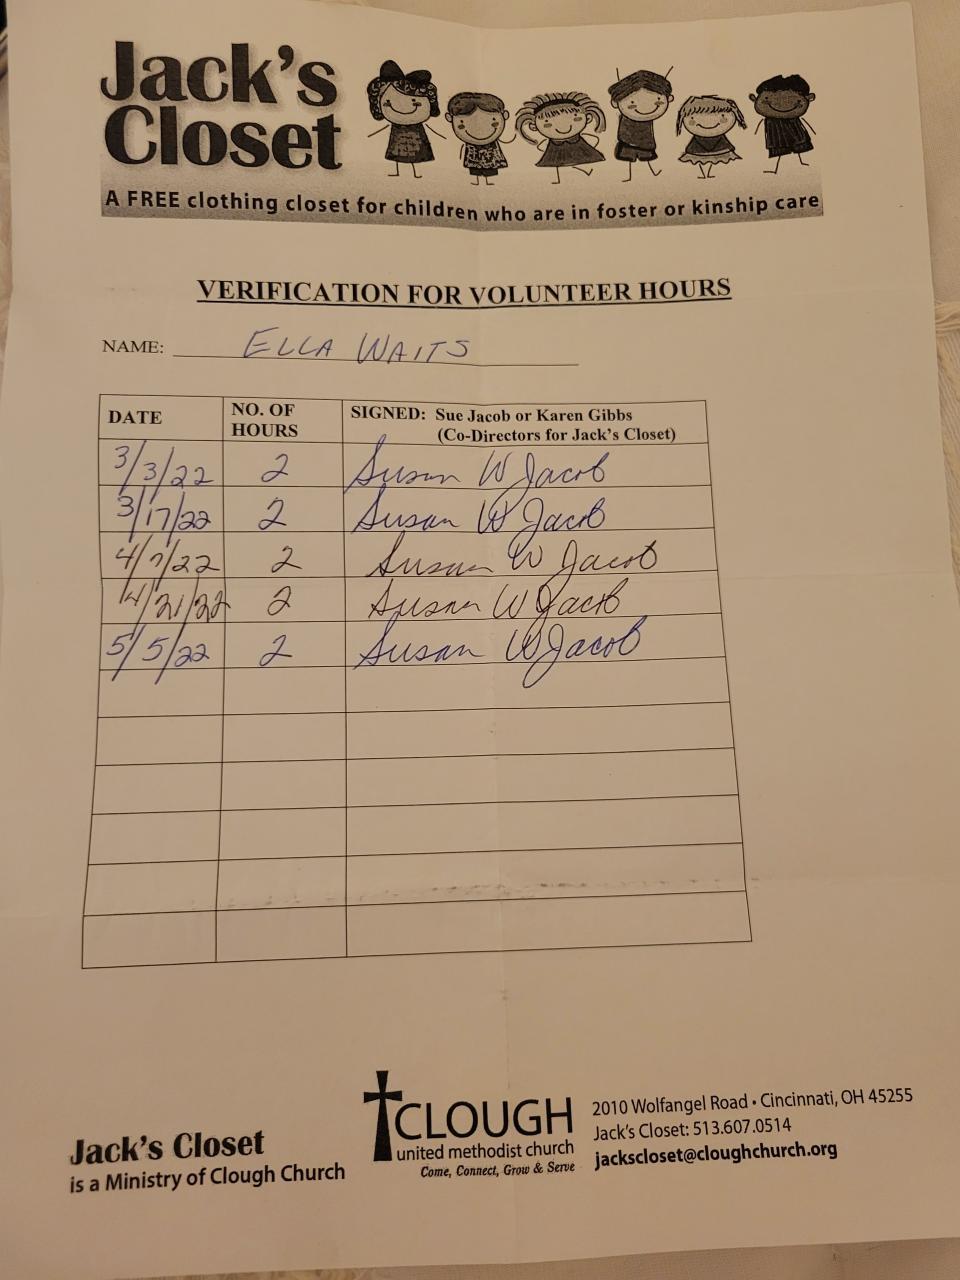 Jack's
Closet
A FREE clothing closet for children who are in foster or kinship care
VERIFICATION FOR VOLUNTEER HOURS
NAME: ELLA WAITS
DATE NO. OF HOURS SIGNED: Sue Jacob or Karen Gibbs
(Co-Directors for Jack's Closet)
3/3/22 2 Susan W Jacob
3/17/22 2 Susan W Jacob
4/7/22 2 Susan W Jacob
4/21/22 2 Susan W Jacob
5/5/22 2 Susan W Jacob
Jack's Closet
is a Ministry of Clough Church
CLOUGH
united methodist church
Come, Connect, Grow & Serve
2010 Wolfangel Road • Cincinnati, OH 45255
Jack's Closet: 513.607.0514
jackscloset@cloughchurch.org